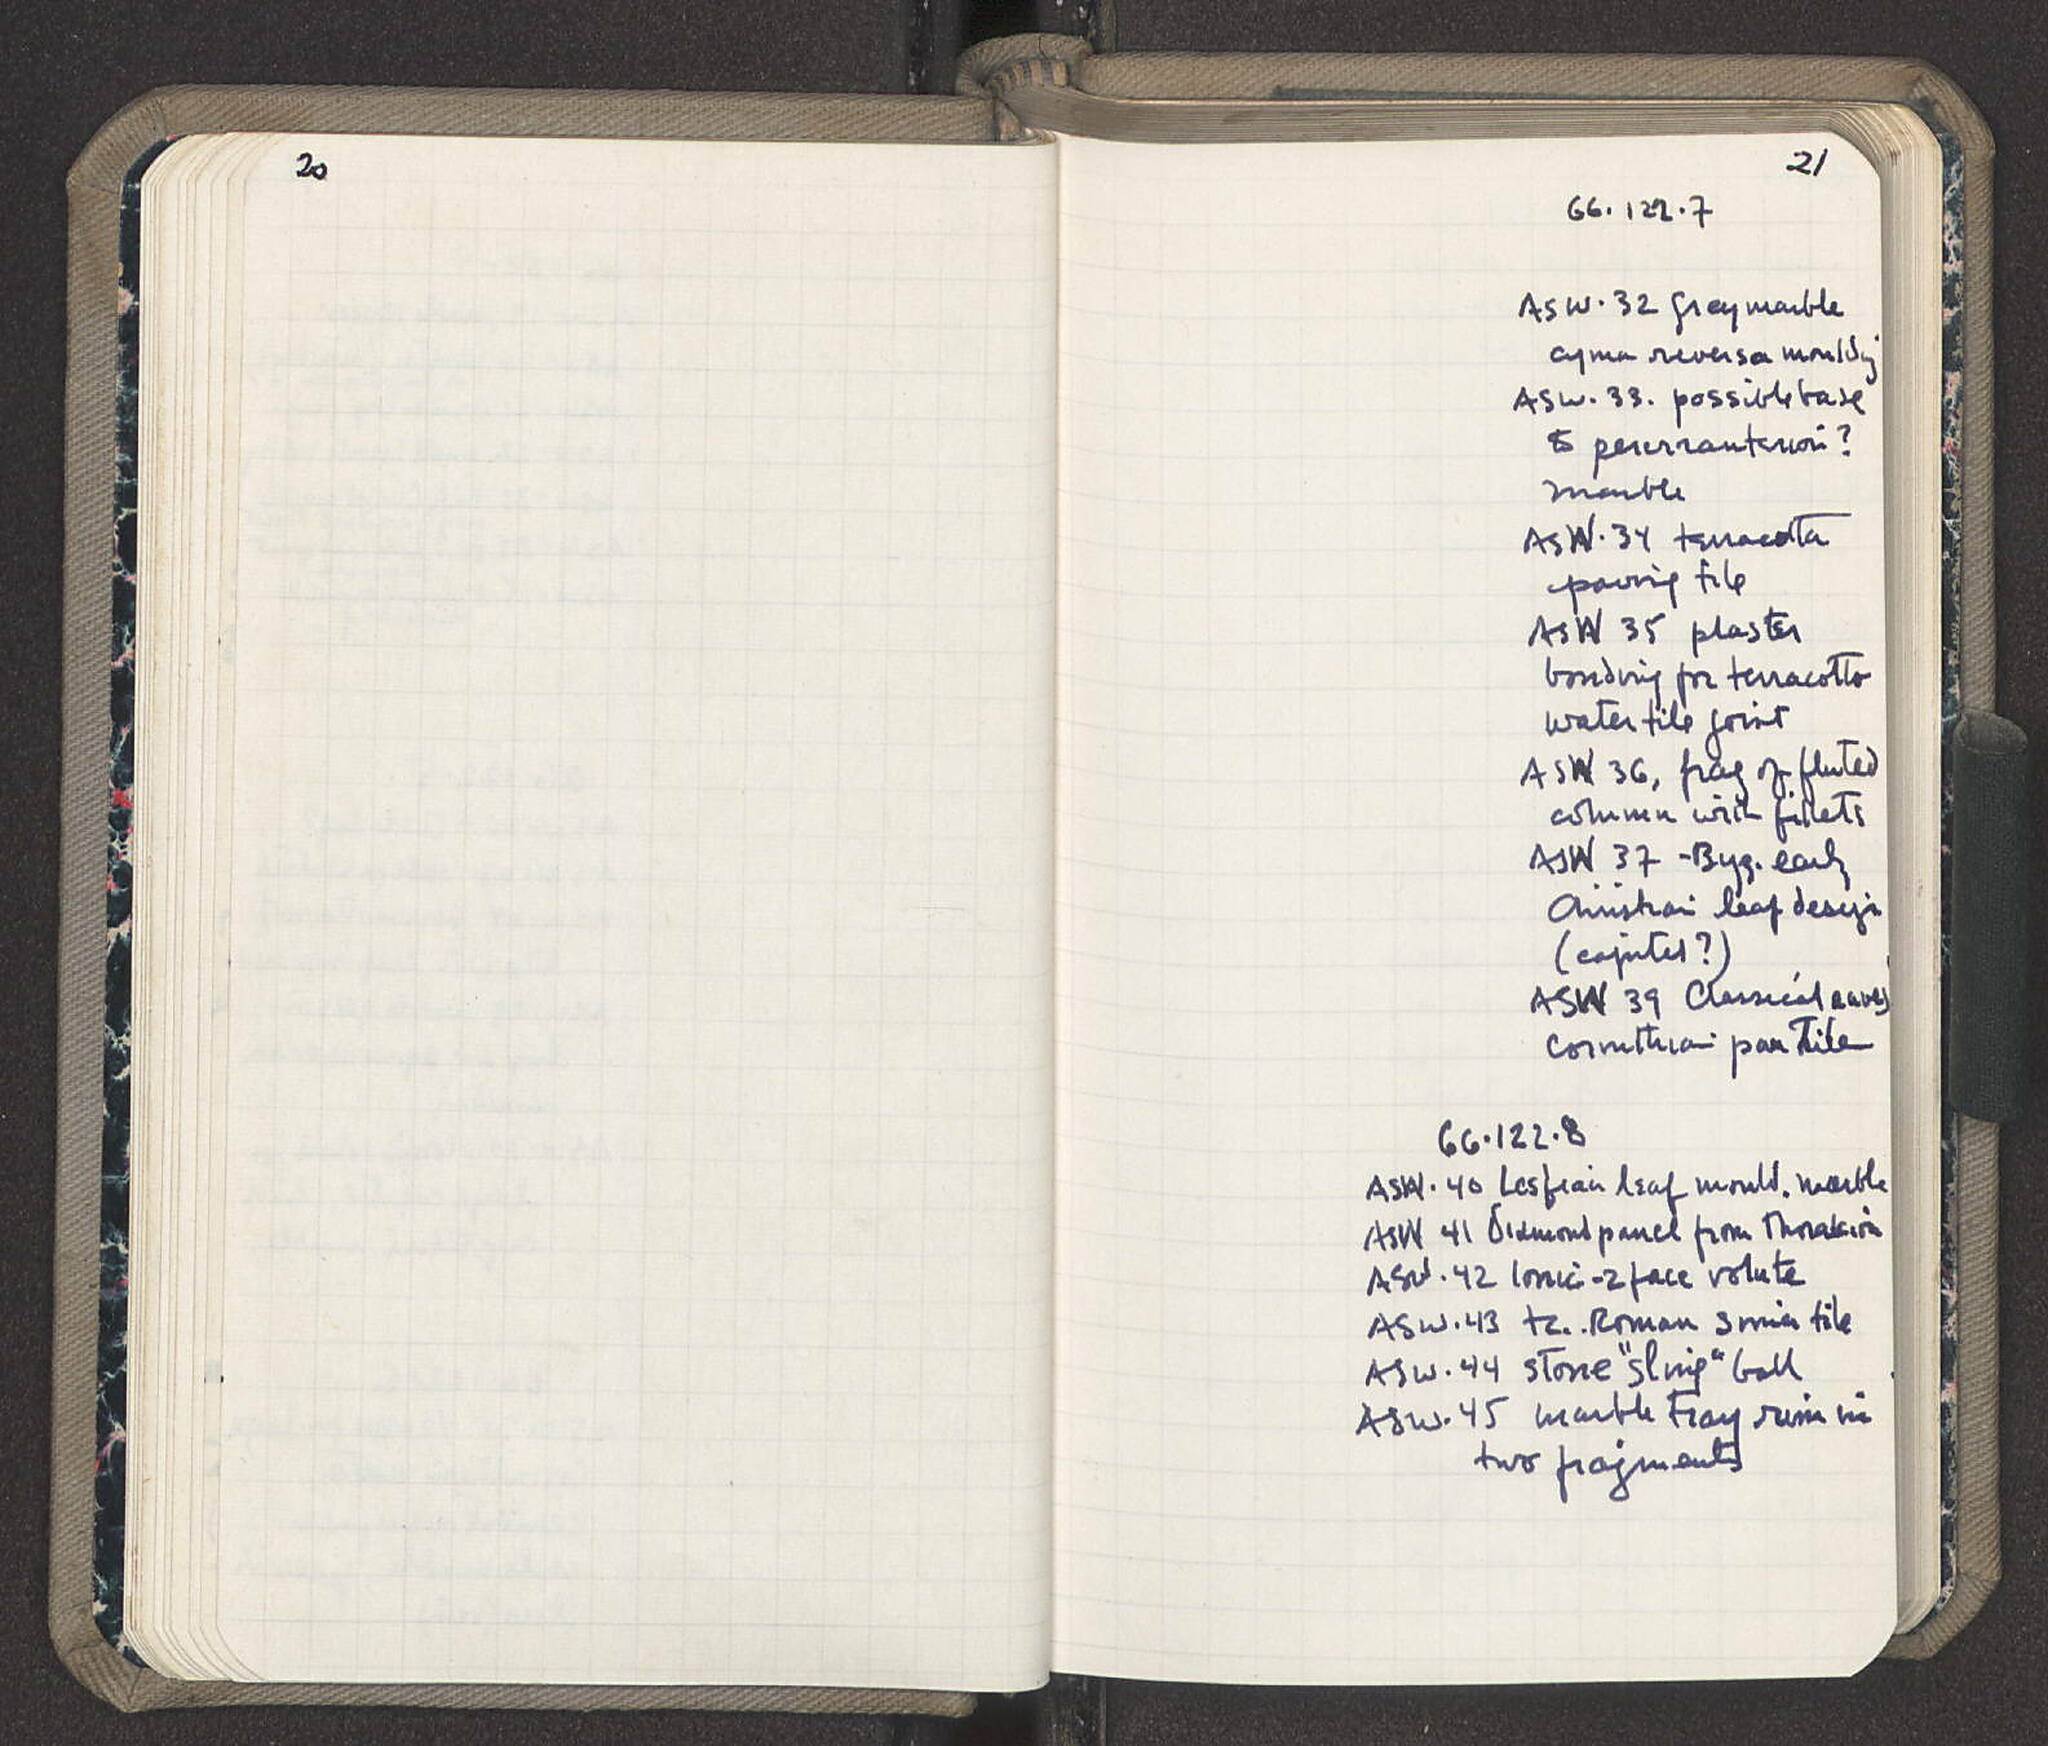 20
21
66.122.7
ASW.32 Grey marble
cyma reversa moulding
ASW.33. possible base
to perirranterion?
marble
ASW.34 terracotta
paving tile
ASW 35 plaster
bonding for terracotta
water tile joint
ASW 36, frag of fluted
column with fillets
ASW 37 - Byz. early
Christian leaf design
ASW 39 Classical eaves
Corinthian pan tile
66.122.8
ASW.40 Lesbian leaf mould. marble
ASW 41 Diamond panel from Thorakion
ASW.42 Ionic - 2 face volute
ASW.43 tc. Roman sima tile
ASW.44 stone "sling" ball
ASW.45 marble tray rim in
two fragments